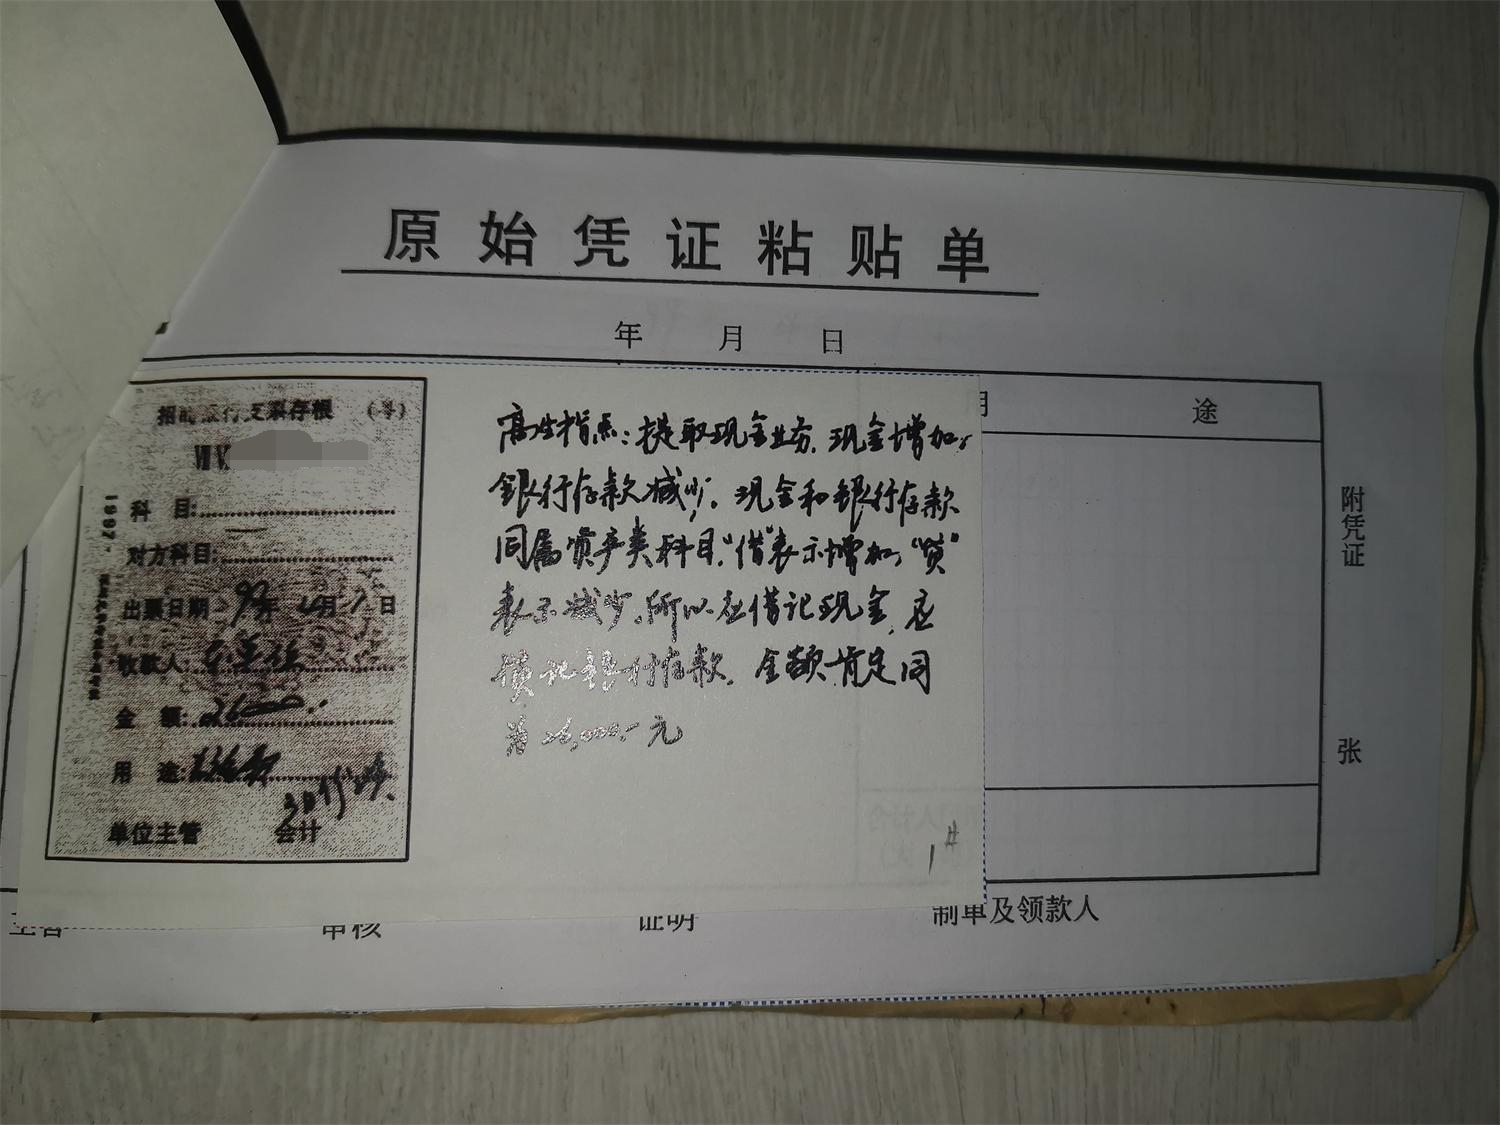 原始凭证粘贴单
年 月 日
途
附凭证
张
支票存根
科 目:
对方科目:
出票日期 年 月 1 日
收款人:
金 额: 26000
用 途:
单位主管 会计
1997.
高生指点:提取现金业务,现金增加,
银行存款减少。现金和银行存款
同属资产类科目,“借”表示增加,“贷”
表示减少。所以应借记现金,应
贷记银行存款。金额肯定同
为26,000.-元
1#
审核
证明
制单及领款人